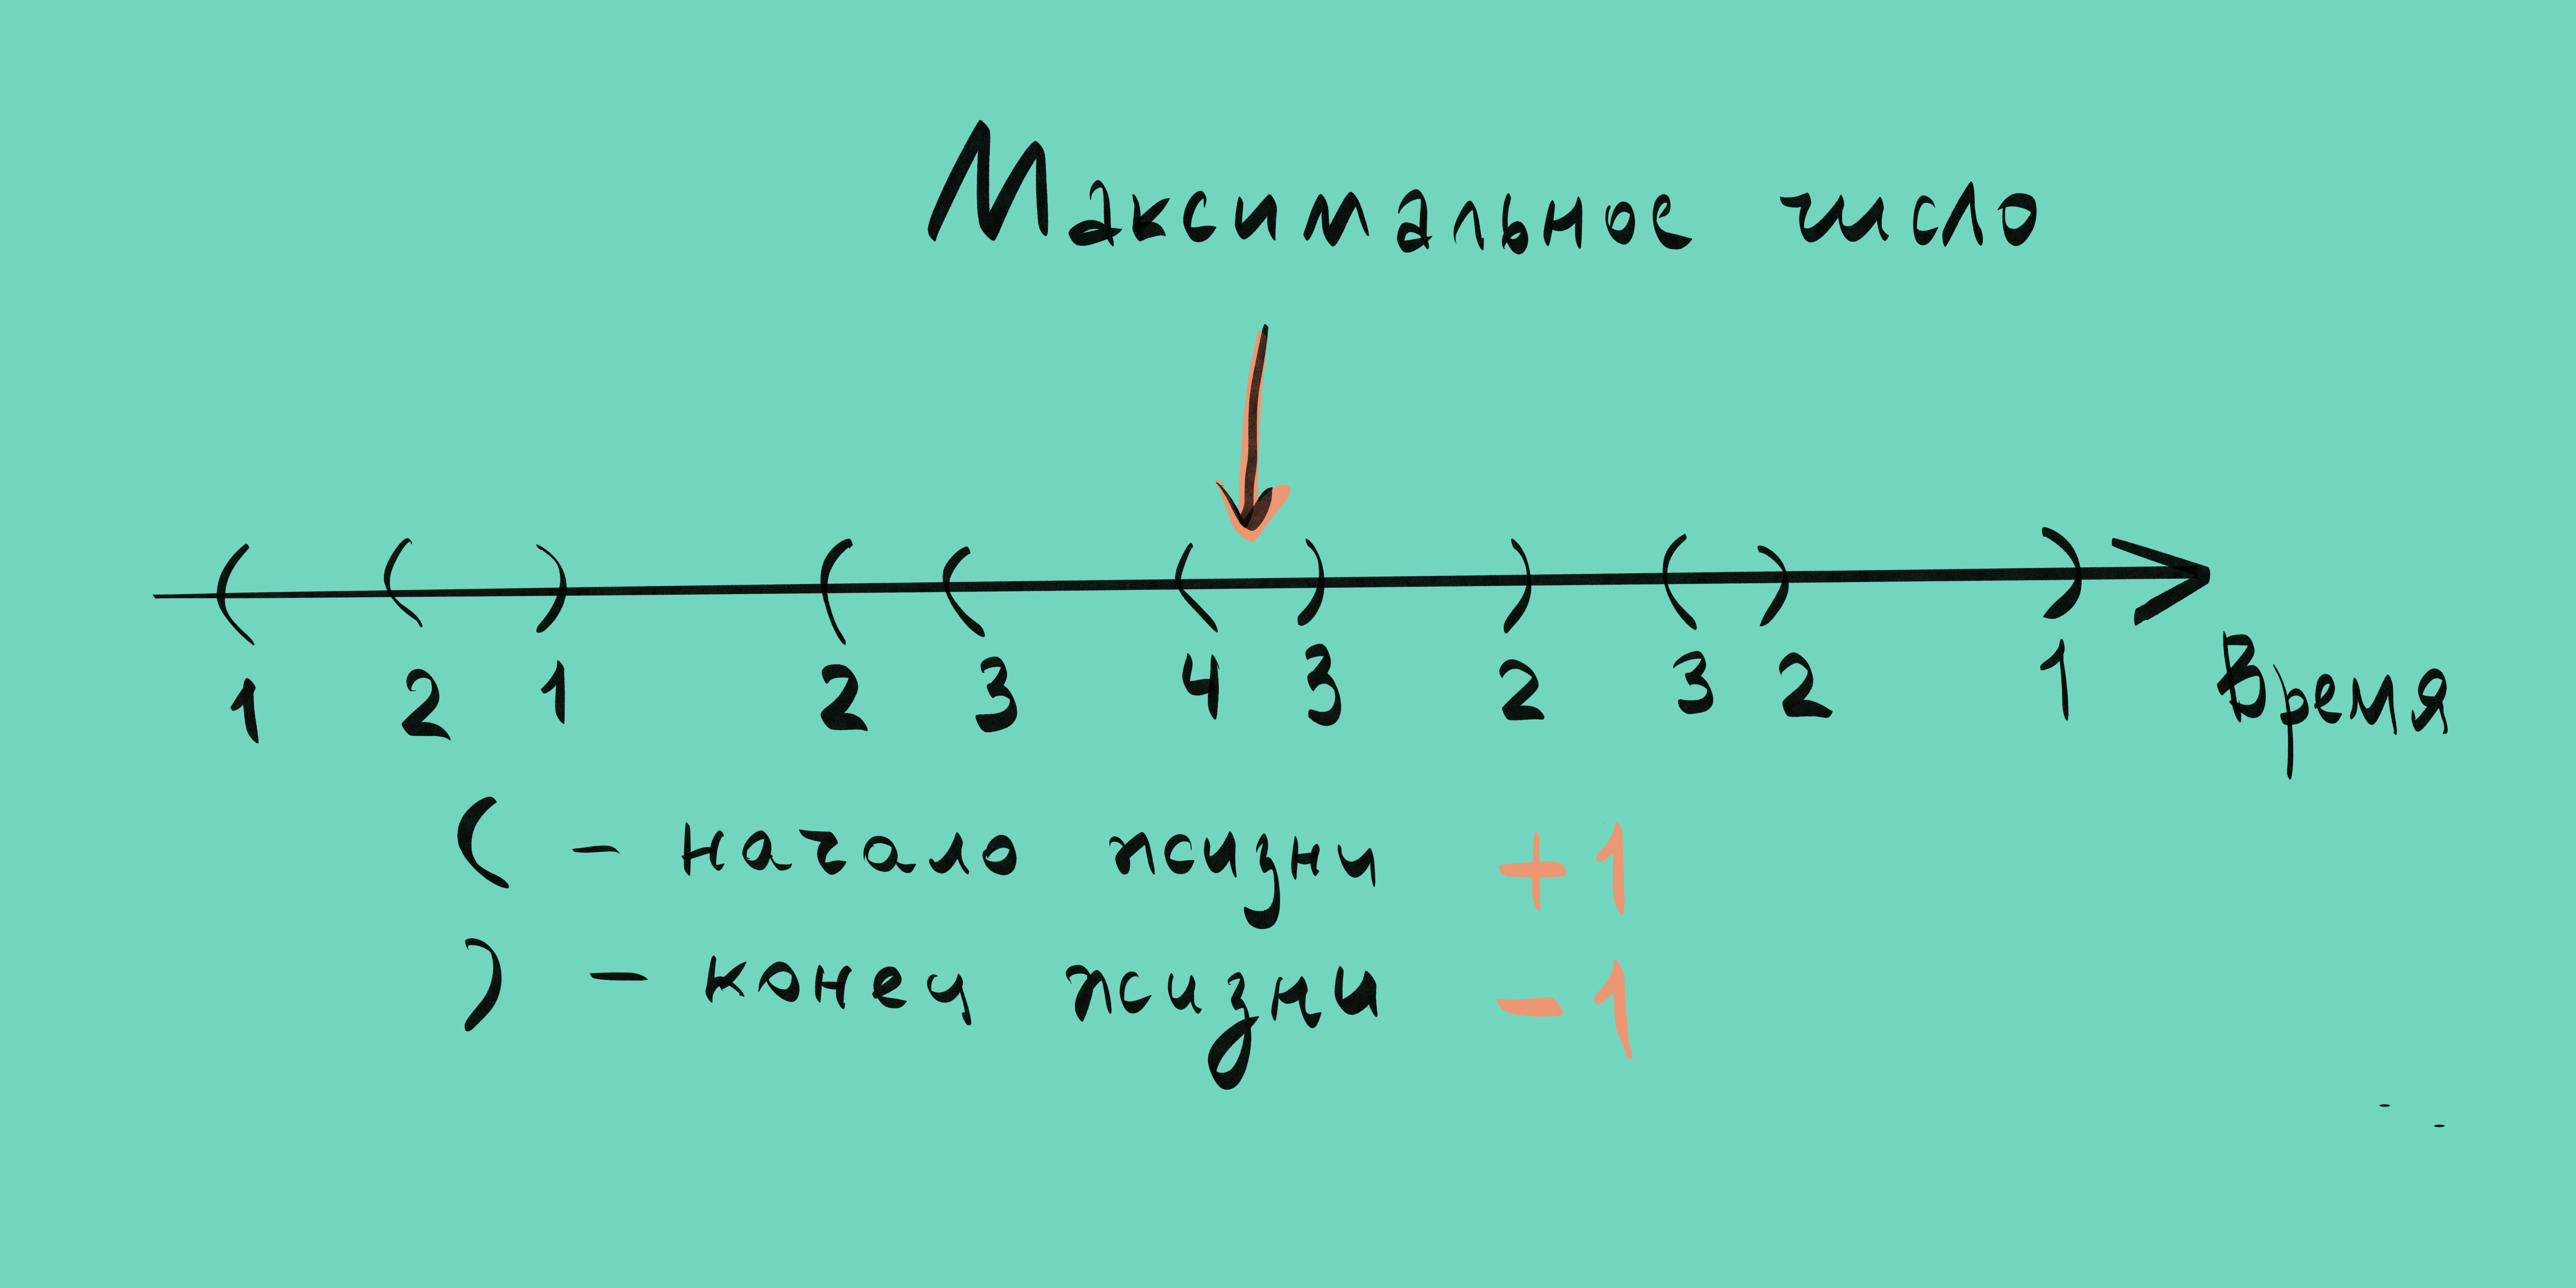 Максимальное число
( ( ) ( ( ( ) ) ( ) )
1 2 1 2 3 4 3 2 3 2 1 Время
( - начало жизни +1
) - конец жизни -1